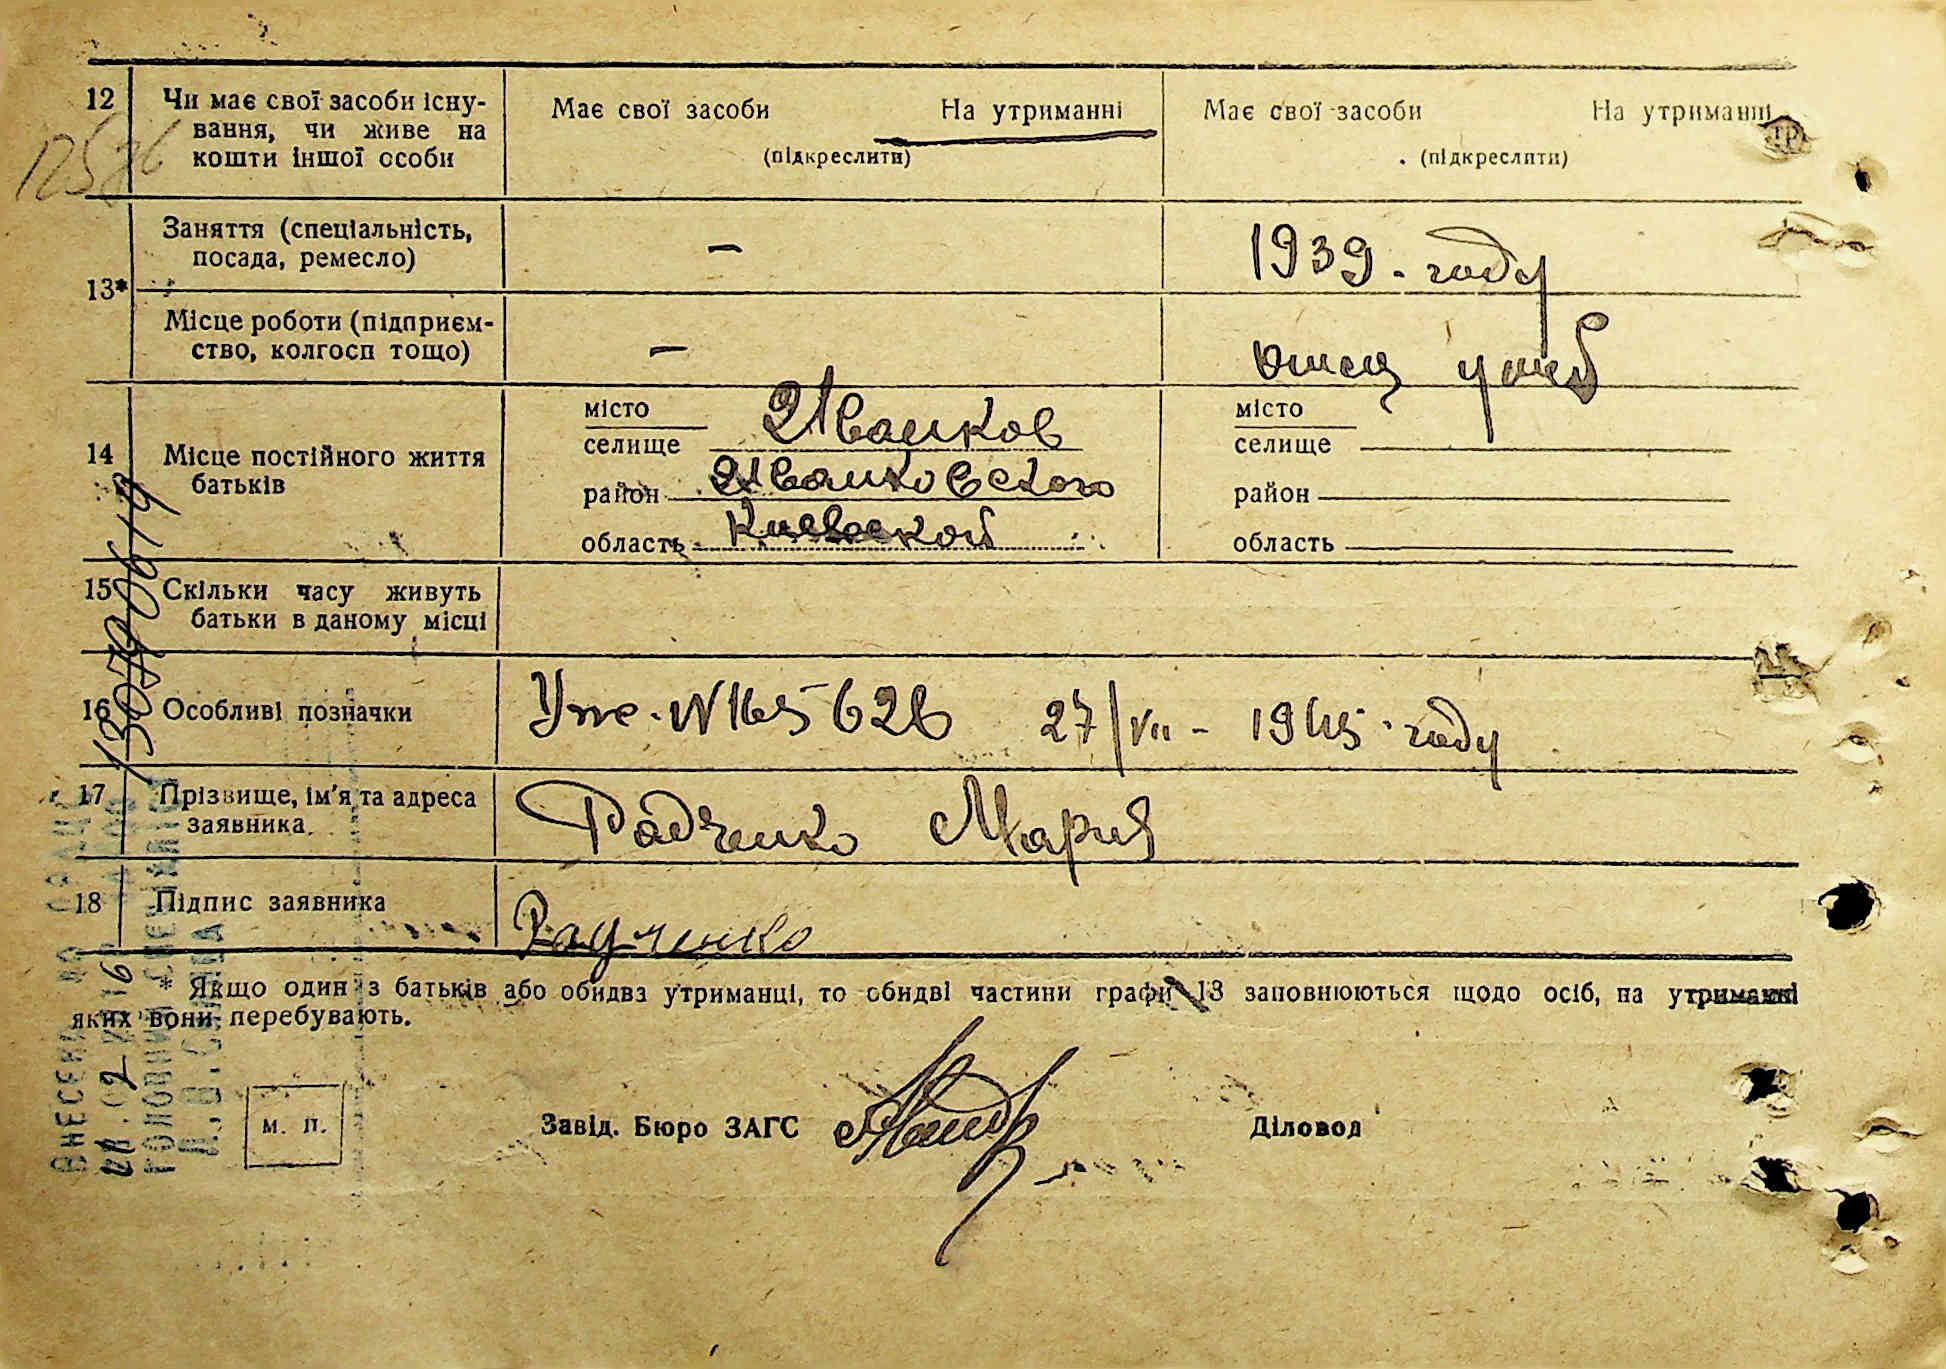 12 Чи має свої засоби існу-
вання, чи живе на
кошти іншої особи
Має свої засоби На утриманні
(підкреслити)
Має свої засоби На утриманні
(підкреслити)
13* Заняття (спеціальність,
посада, ремесло)
—
1939. году
Місце роботи (підприєм-
ство, колгосп тощо)
—
отец умер
14 Місце постійного життя
батьків
місто
селище Иванков
район Иванковского
область Киевской
місто
селище
район
область
15 Скільки часу живуть
батьки в даному місці
16 Особливі позначки
27/VII - 1945. году
17 Прізвище, ім'я та адреса
заявника
Радченко Мария
18 Підпис заявника
Радченко
* Якщо один з батьків або обидва утриманці, то обидві частини графи 13 заповнюються щодо осіб, на утриманні
яких вони перебувають.
М. П.
Завід. Бюро ЗАГС
Діловод